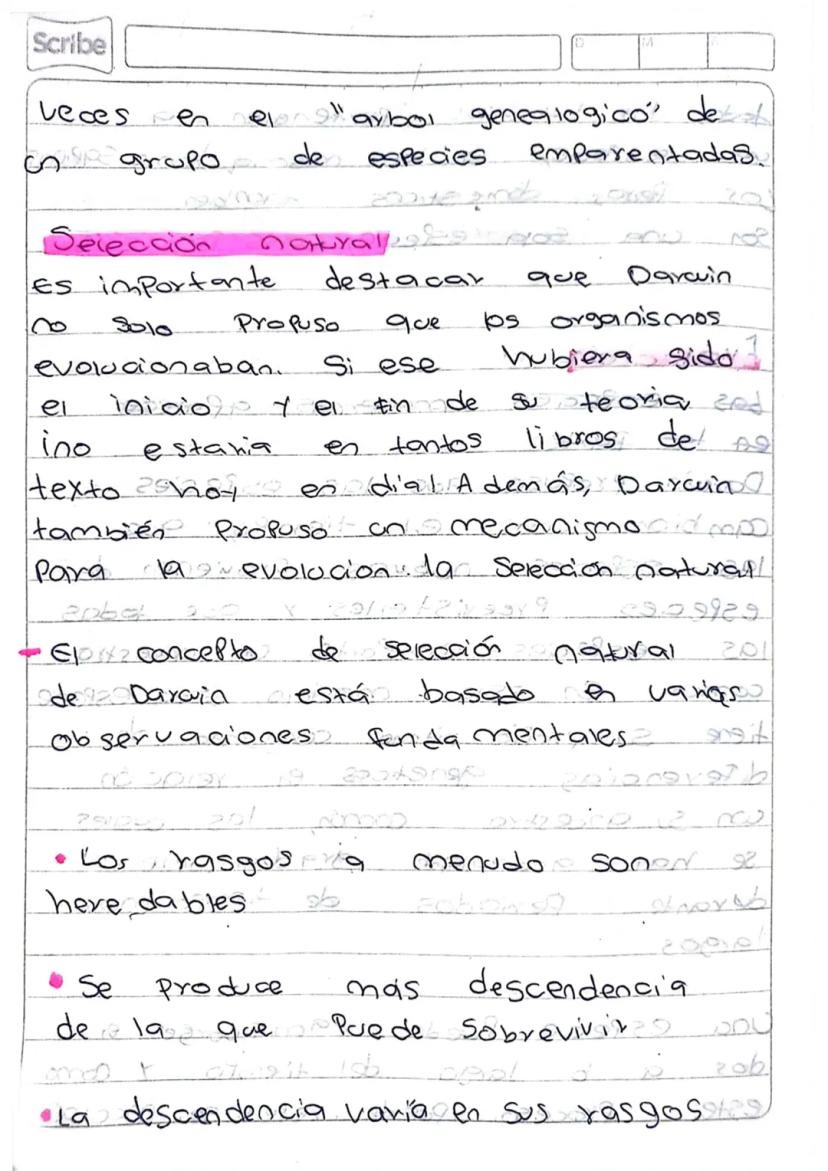 Scribe
D M A
veces en el "arbol genealogico" de
un grupo de especies emparentadas.
Selección natural
Es importante destacar que Darwin
no solo Propuso que los organismos
evolucionaban. Si ese hubiera sido
el inicio y el fin de su teoria
¡no estaria en tantos libros de
texto hoy en dia! Además, Darwin
también Propuso un mecanismo
Para la evolucion: la Selección natural
- El concepto de selección natural
de Darwin está basado en varias
observaciones fundamentales
• Los rasgos a menudo son
heredables
• Se produce más descendencia
de la que Puede Sobrevivir
• La descendencia varía en sus rasgos